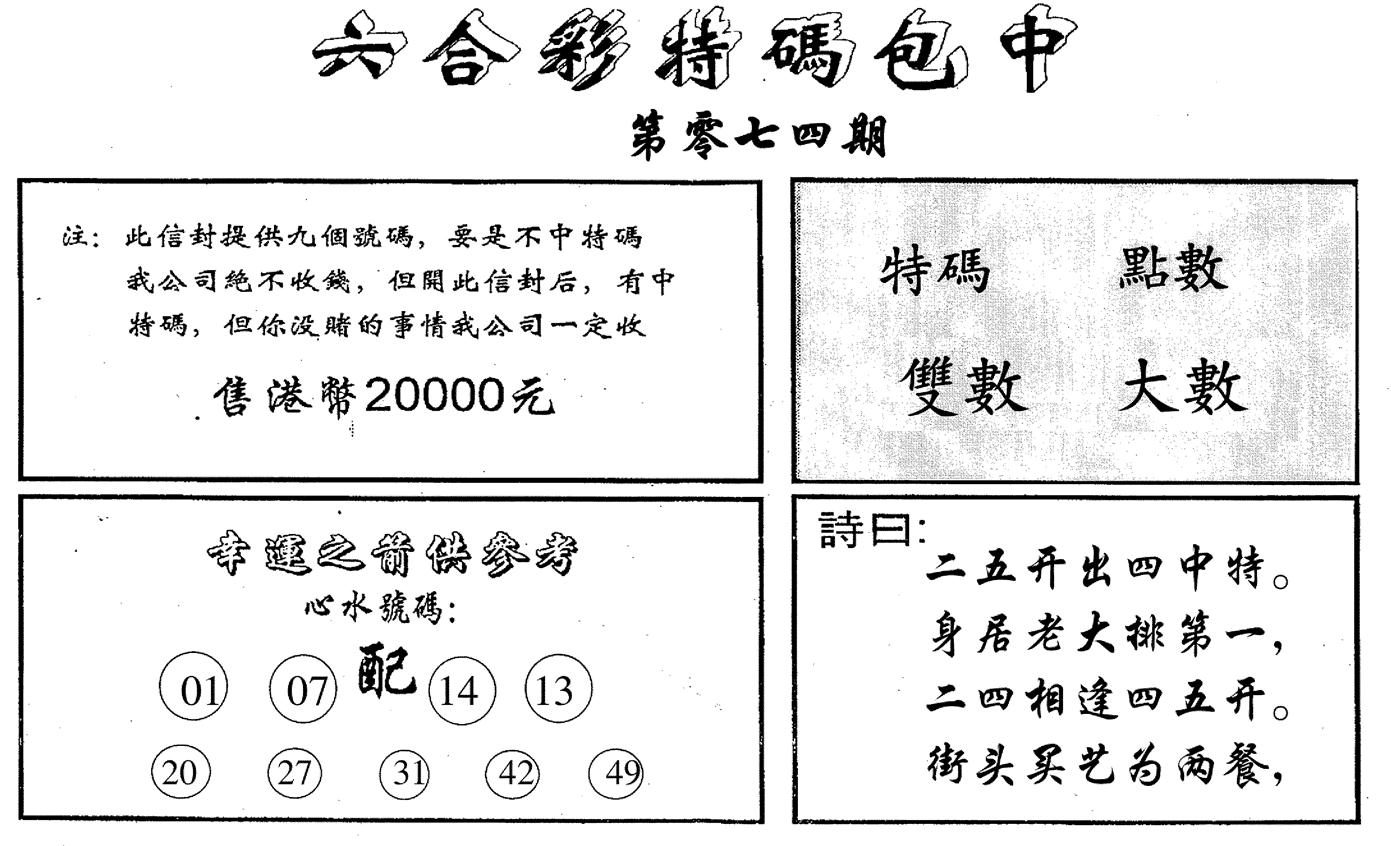 六合彩特碼包中
第零七四期
注：此信封提供九個號碼，要是不中特碼
我公司絶不收錢，但開此信封后，有中
特碼，但你没賭的事情我公司一定收
售港幣20000元
特碼 點數
雙數 大數
幸運之箭供參考
心水號碼：
01 07 配 14 13
20 27 31 42 49
詩曰：
二五开出四中特。
身居老大排第一，
二四相逢四五开。
街头买艺为两餐，